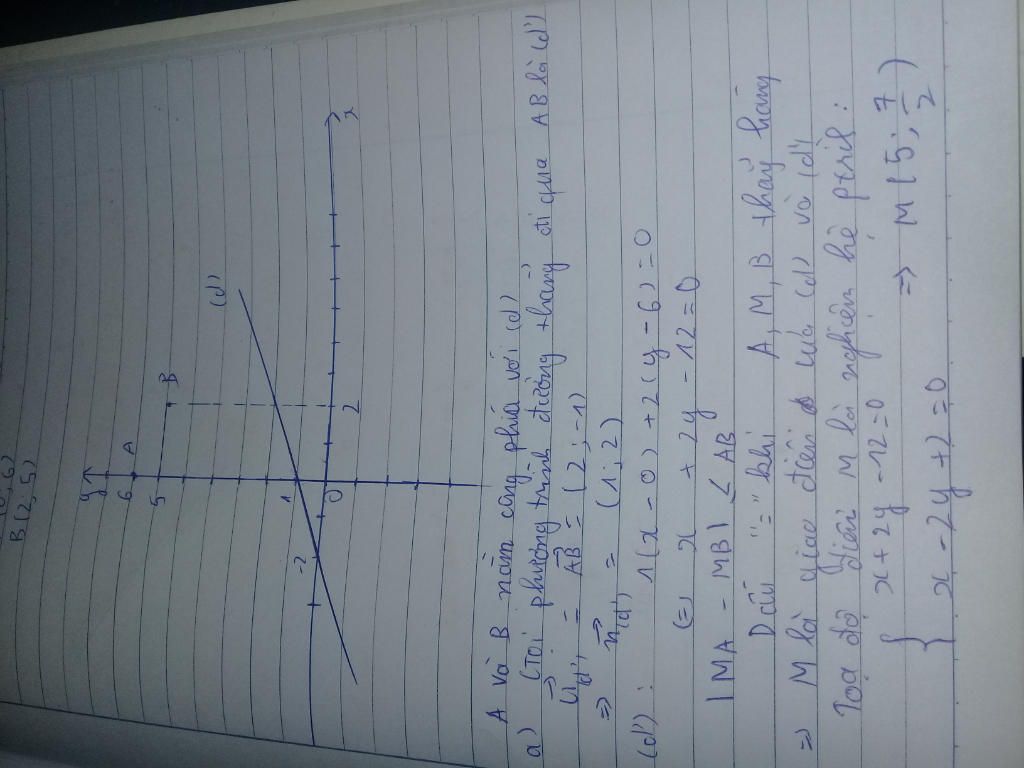 B(2;5)
y
6
A
5
B
(d)
1
-2
0
2
x
A và B nằm cùng phía với (d)
a) Gọi phương trình đường thẳng đi qua AB là (d')
u(d') = AB = (2;-1)
=> n(d') = (1;2)
(d'): 1(x-0)+2(y-6)=0
(=) x + 2y - 12 = 0
|MA - MB| ≤ AB
Dấu "=" khi A, M, B thẳng hàng
=> M là giao điểm của (d) và (d')
Tọa độ điểm M là nghiệm hệ ptrìl:
{ x+2y-12=0
x-2y+2=0 => M(5; 7/2)